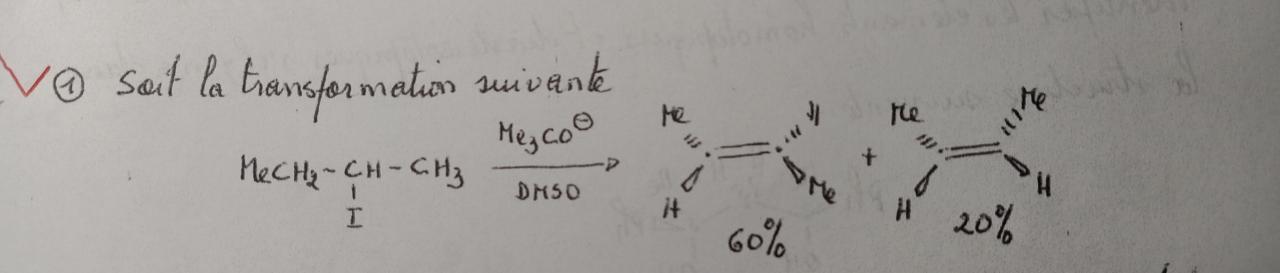 ① Soit la transformation suivante
MeCH₂-CH-CH₃
I
Me₃CO⊖
DMSO
Me H
H Me
60%
+
Me Me
H H
20%